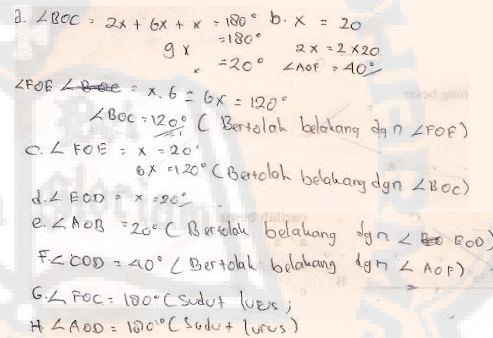 a. ∠BOC = 2x + 6x + x = 180° b. x = 20
9x = 180° 2x = 2 x 20
x = 20° ∠AOF = 40°
∠FOE = x. 6 = 6x = 120°
∠BOC = 120° ( Bertolak belakang dgn ∠FOE)
C. ∠ FOE = x = 20°
6x = 120° ( Bertolak belakang dgn ∠BOC)
d. ∠ EOD = x = 20°
e. ∠AOB = 20° ( Bertolak belakang dgn ∠ EOD)
F. ∠ COD = 40° ( Bertolak belakang dgn ∠ AOF)
G. ∠ FOC = 180° ( Sudut lurus ;
H. ∠ AOD = 180° ( Sudut lurus)